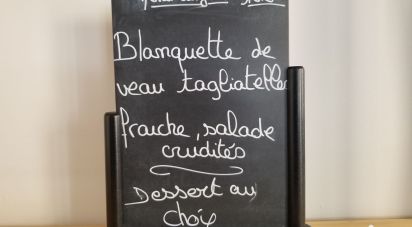 Blanquette de
veau tagliatelles
fraîche, salade
crudités
Dessert au
choix